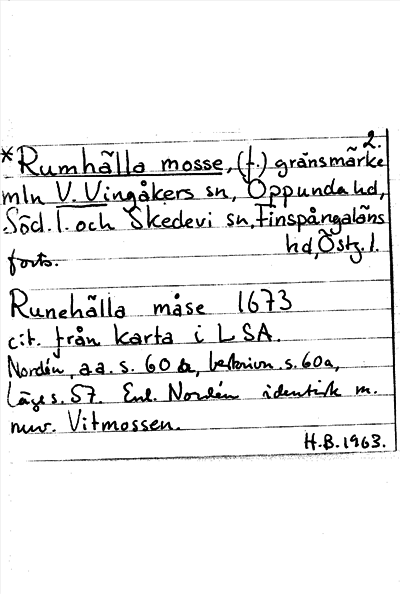 2.
*Rumhälla mosse, (f.) gränsmärke
mln V. Vingåkers sn, Oppunda hd,
Söd. l. och Skedevi sn, Finspångaläns
hd, Östg. l.
forts.
Runehälla måse 1673
cit. från karta i LSA.
Nordén, aa. s. 60 beskrivn. s. 60a,
Läge s. 57. Enl. Nordén identisk m.
nuv. Vitmossen.
H.B. 1963.